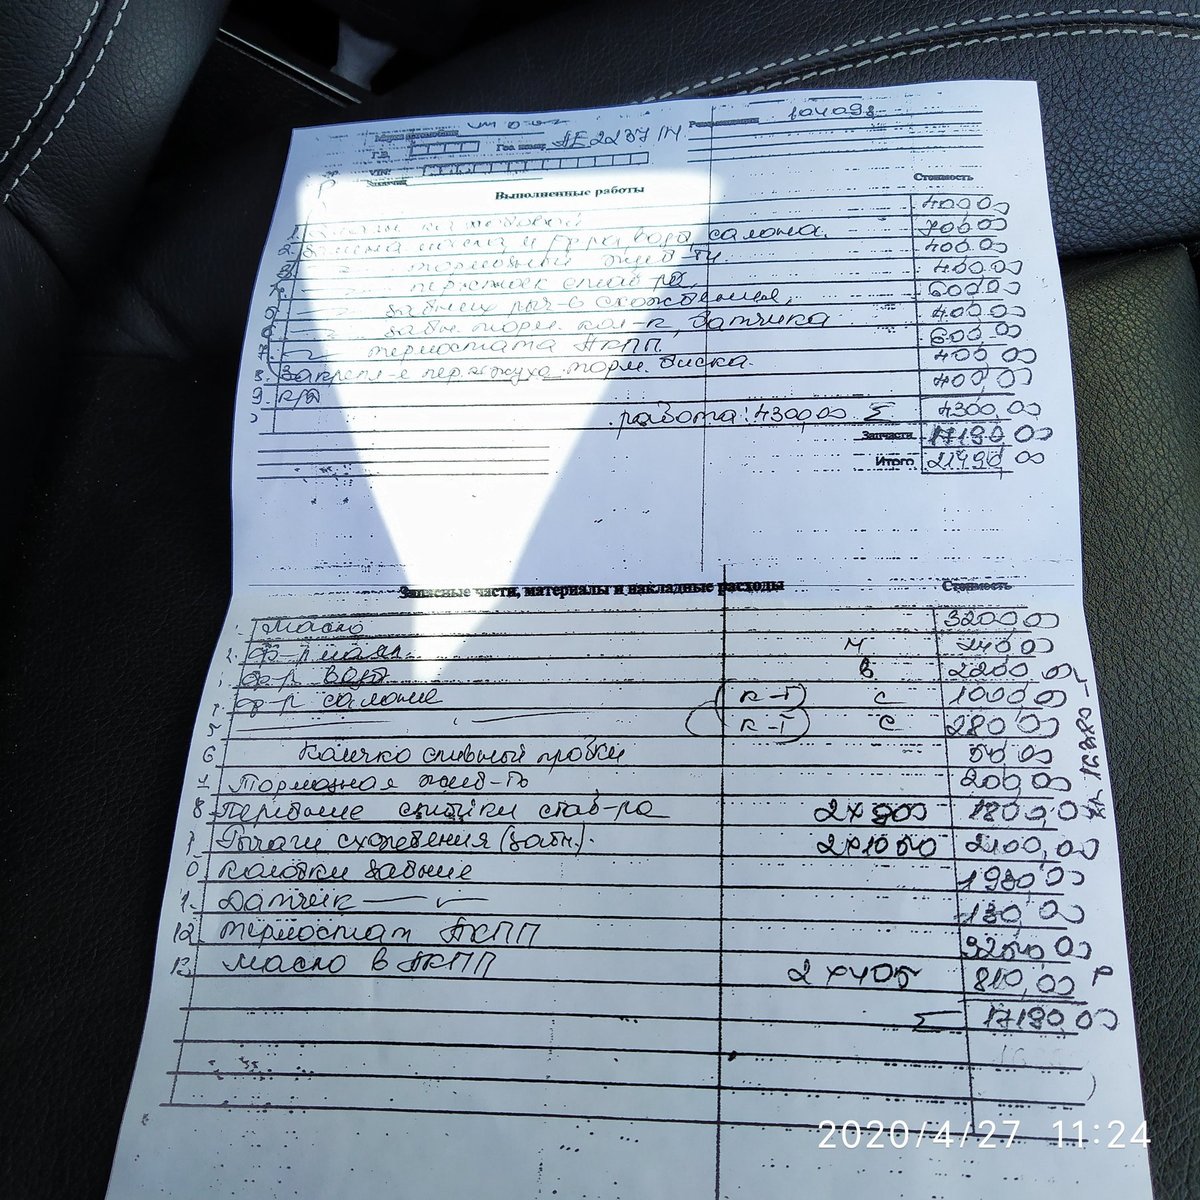 АЕ2237 104093
Гос. номер
VIN:
Заказчик
Выполненные работы Стоимость
1. 400,00
2. Замена масла и салона. 700,00
тормозной жид-ти 400,00
стаб-ра, 400,00
задних рыч-в схождения, 600,00
задн. торм. кол-к, датчика 400,00
7. термостата АКПП 600,-
8. торм. диска. 400,00
9. 400,00
работа: 4300,00 Σ 4300,00
Запчасти 17190,00
Итого 21490,00
Запасные части, материалы и накладные расходы Стоимость
Масло 3200,00
2. ф-р масл. М 240,00
ф-р возд В 2200,00
ф-р салоне К-Т С 1000,00
5 К-Т С 280,00
6 Колечко сливной пробки 50,00
7 Тормозная жид-ть 200,00
8 Передние стойки стаб-ра 2х900 1800,00
Рычаги схождения (задн). 2х1050 2100,00
0 Колодки задние 1930,00
1. Датчик 130,00
12 термостат АКПП 3250,00
13 масло в АКПП 2х405 810,00
Σ 17190,00
16380
2020/4/27 11:24